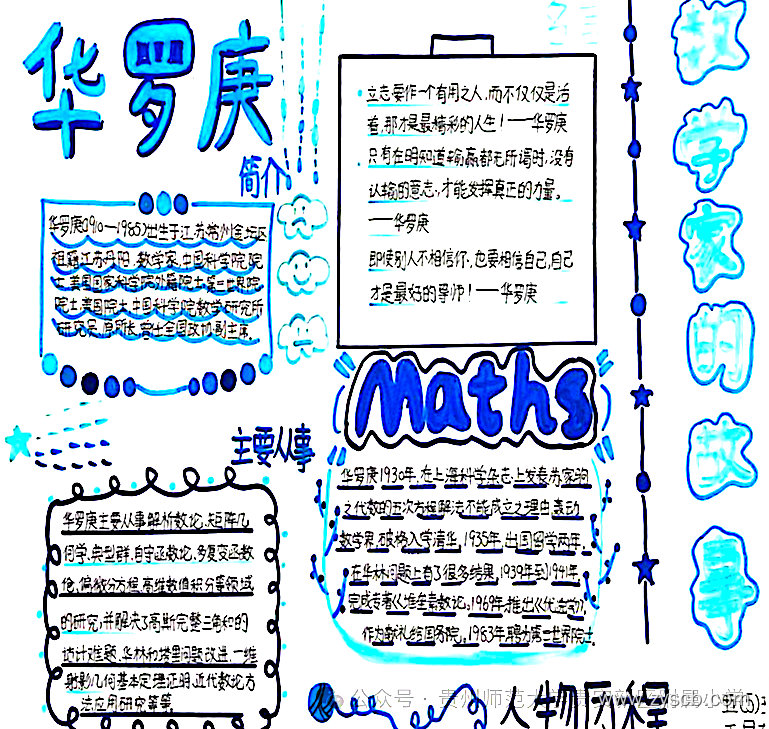 华罗庚
简介
华罗庚(1910—1985)出生于江苏常州金坛区
祖籍江苏丹阳,数学家,中国科学院院
士,美国国家科学院外籍院士,第三世界院
院士,美国院士,中国科学院数学研究所
研究员,原所长,曾任全国政协副主席。
立志要作一个有用之人,而不仅仅是活
着,那才是最精彩的人生!——华罗庚
只有在明知道输赢都无所谓时,没有
认输的意志,才能发挥真正的力量。
——华罗庚
即使别人不相信你,也要相信自己,自己
才是最好的导师!——华罗庚
数学家的故事
Maths
主要从事
华罗庚主要从事解析数论、矩阵几
何学、典型群、自守函数论、多复变函数
论、偏微分方程、高维数值积分等领域
的研究,并解决了高斯完整三角和的
估计难题、华林和塔里问题改进、一维
射影几何基本定理证明,近代数论方
法应用研究等等。
华罗庚1930年,在上海科学杂志上发表苏家驹
之代数的五次方程解法不能成立之理由轰动
数学界,破格入学清华,1935年,出国留学两年,
在华林问题上有了很多结果,1939年到1941年,
完成专著《堆垒素数论》,1969年,推出《优选学》,
作为献礼给国务院,1983年聘为第三世界院士.
人物历程
公众号·贵州师范大学贵
www.zyscb.com